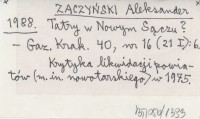 ZACZYŃSKI Aleksander
1988. Tatry w Nowym Sączu?
- Gaz. Krak. 40, nr 16 (21 I): 6.
Krytyka likwidacji powia-
tów (m.in. nowotarskiego) w 1975.